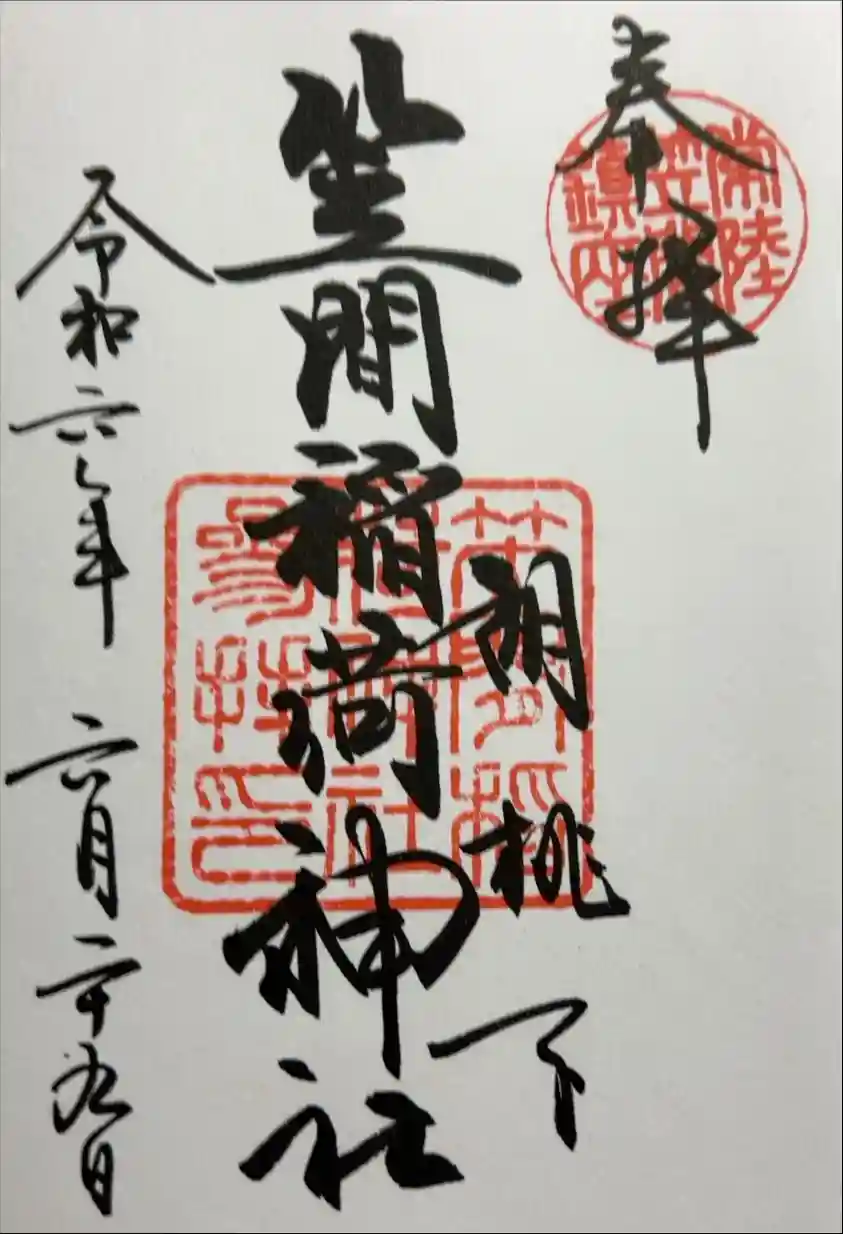 奉拝
常陸
笠間
鎮座
胡桃下
笠間稲荷神社
笠間稲
荷神社
参拝印
令和六年 六月二十九日